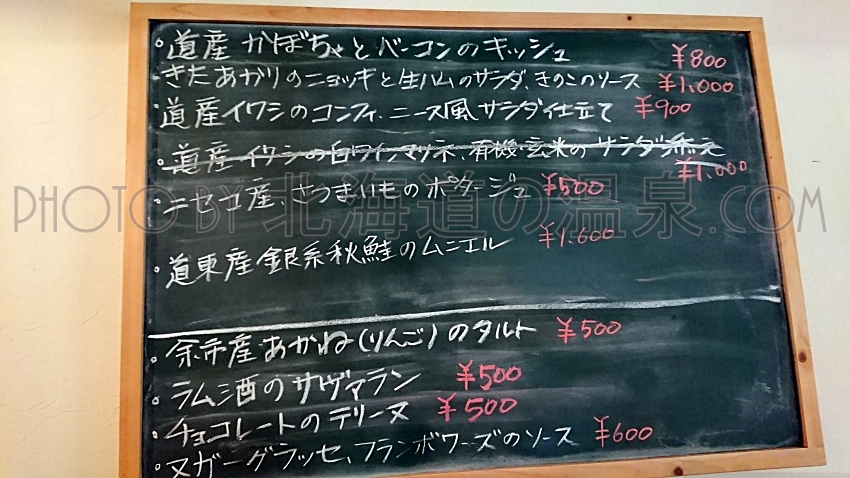 ・道産かぼちゃとベーコンのキッシュ ¥800
・きたあかりのニョッキと生ハムのサラダ、きのこのソース ¥1,000
・道産イワシのコンフィ、ニース風サラダ仕立て ¥900
・道産イワシの白ワインマリネ、有機玄米のサラダ添え ¥1,000
・ニセコ産、さつまいものポタージュ ¥500
・道東産銀系秋鮭のムニエル ¥1,600
・余市産あかね(りんご)のタルト ¥500
・ラム酒のサヴァラン ¥500
・チョコレートのテリーヌ ¥500
・ヌガーグラッセ、フランボワーズのソース ¥600
PHOTO BY 北海道の温泉.COM